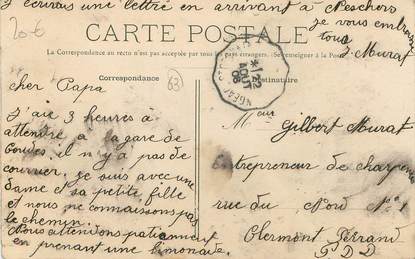 J'écrivais une lettre en arrivant à Neschers
je vous embrasse
tous
J. Murat
20€
CARTE POSTALE
La Correspondance au recto n'est pas acceptée par tous les pays étrangers. (Se renseigner à la Poste)
Correspondance
63
Destinataire
12
AOUT
08
cher Papa
J'ai 3 heures à
attendre à la gare de
Coudes. il n'y a pas de
courrier. je suis avec une
Dame et sa petite fille
et nous ne connaissons pas
le chemin.
Nous attendons patiemment
en prenant une limonade.
Mr
Gilbert Murat
Entrepreneur de charpente
rue du Nord N° 1
Clermont Ferrand
P D D